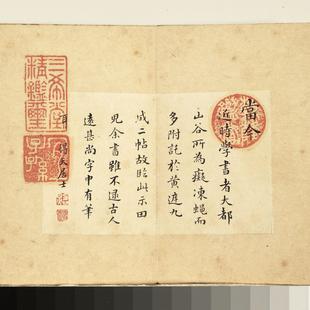 當余
近時學書者大都
山谷所為癡凍蠅而
多附託於黃遵九
成二帖故臨此示田
兒余書雖不逮古人
遠甚尚字中有筆
耳
三希堂精鑑璽
宜子孫